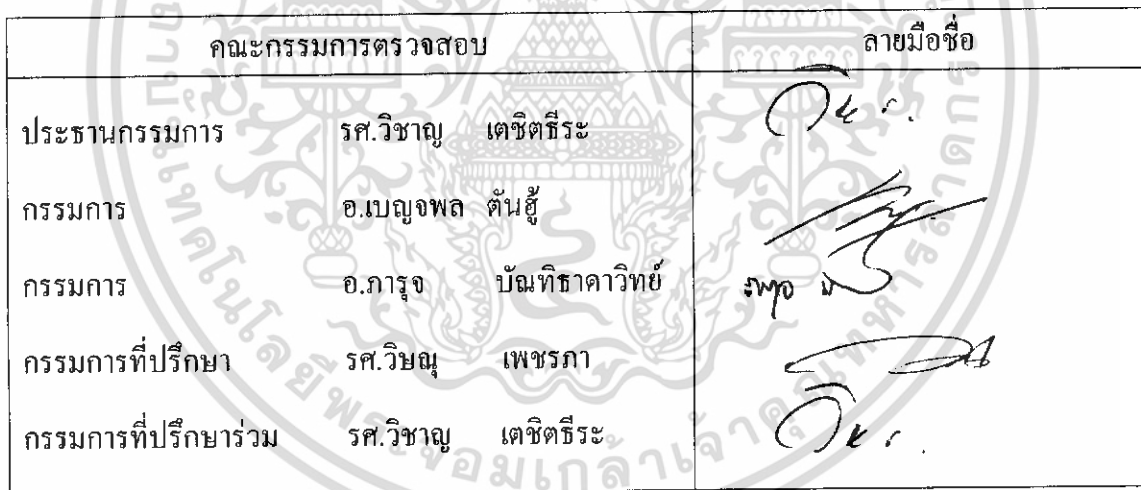 คณะกรรมการตรวจสอบ ลายมือชื่อ
ประธานกรรมการ รศ.วิชาญ เตชิตธีระ
กรรมการ อ.เบญจพล ตันฮู้
กรรมการ อ.ภารุจ บัณฑิธาดาวิทย์
กรรมการที่ปรึกษา รศ.วิษณุ เพชรภา
กรรมการที่ปรึกษาร่วม รศ.วิชาญ เตชิตธีระ